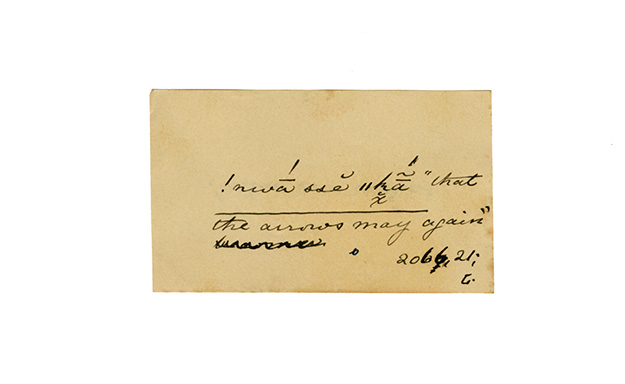 !nwā́ ssĕ ǁkā̰̃́ "that
the arrows may again"
2066, 21;
L.